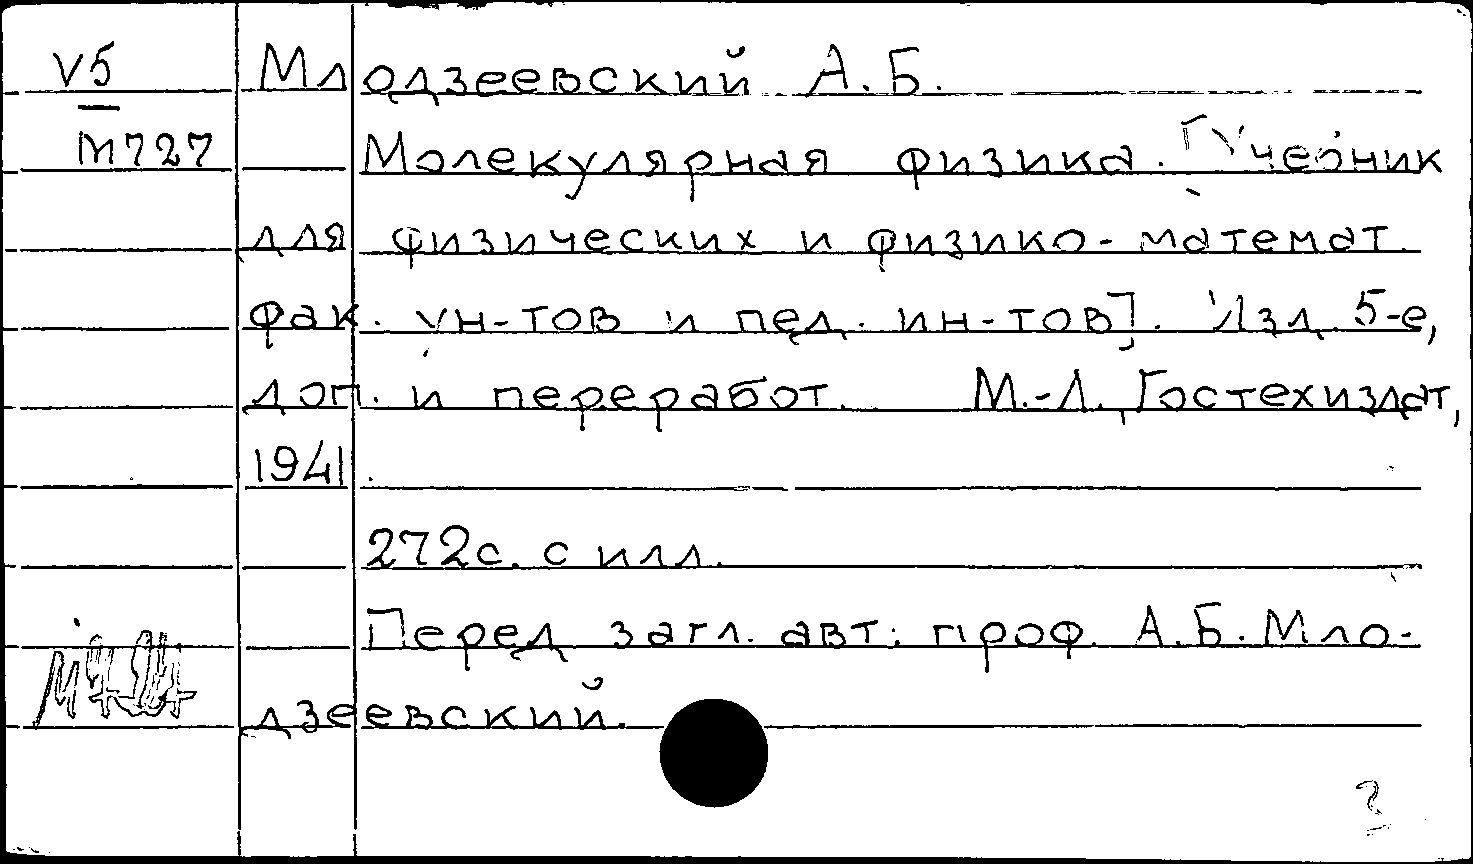 V5
М727
Млодзеевский А.Б.
Молекулярная физика. [Учебник
для физических и физико-математ.
фак. ун-тов и пед. ин-тов]. Изд. 5-е,
доп. и переработ. М.-Л., Гостехиздат,
1941.
272с. с илл.
Перед загл. авт: проф. А.Б. Мло-
дзеевский.